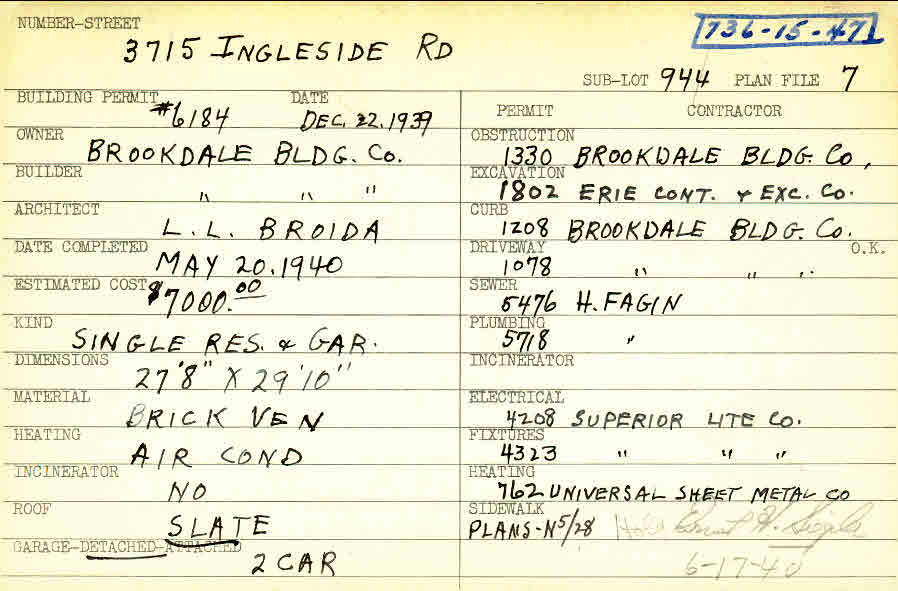 NUMBER-STREET
3715 INGLESIDE RD
736-15-47
SUB-LOT 944 PLAN FILE 7
BUILDING PERMIT DATE
#6184 DEC. 22. 1939
OWNER
BROOKDALE BLDG. Co.
BUILDER
" " "
ARCHITECT
L. L. BROIDA
DATE COMPLETED
MAY 20. 1940
ESTIMATED COST
$7000.00
KIND
SINGLE RES. & GAR.
DIMENSIONS
27'8" X 29'10"
MATERIAL
BRICK VEN
HEATING
AIR COND
INCINERATOR
NO
ROOF
SLATE
GARAGE-DETACHED-ATTACHED
2 CAR
PERMIT CONTRACTOR
OBSTRUCTION
1330 BROOKDALE BLDG. Co,
EXCAVATION
1802 ERIE CONT. & EXC. Co.
CURB
1208 BROOKDALE BLDG. Co.
DRIVEWAY O.K.
1078 " " "
SEWER
5476 H. FAGIN
PLUMBING
5718 "
INCINERATOR
ELECTRICAL
4208 SUPERIOR LITE Co.
FIXTURES
4323 " " "
HEATING
762 UNIVERSAL SHEET METAL CO
SIDEWALK
PLANS-N5/28
6-17-40